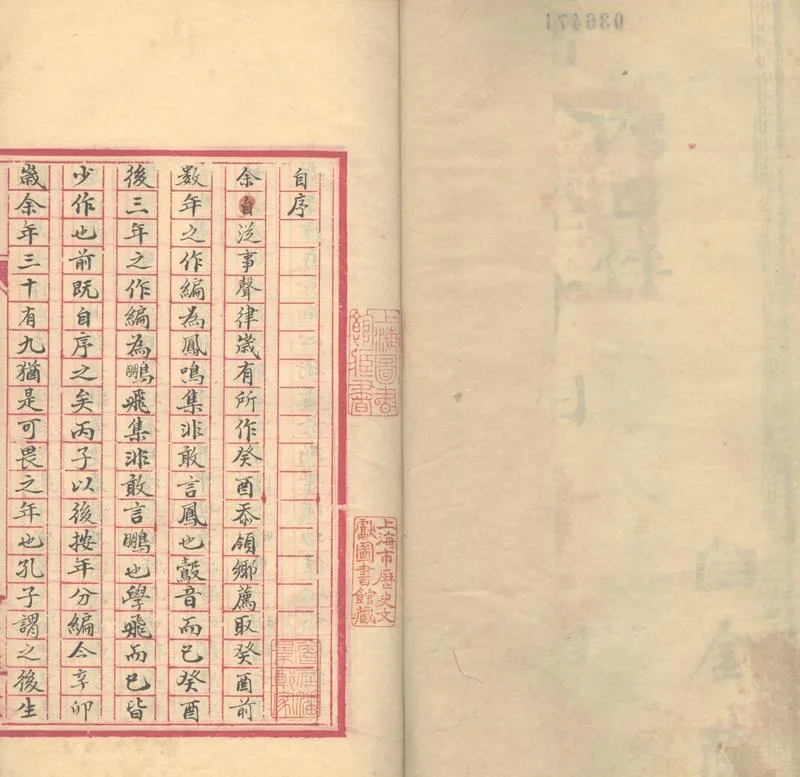 自序
余自從事聲律歲有所作癸酉忝領鄉薦取癸酉前
數年之作編為鳳鳴集非敢言鳳也鷇音而已癸酉
後三年之作編為鵬飛集非敢言鵬也學飛而已皆
少作也前既自序之矣丙子以後按年分編今辛卯
歲余年三十有九猶是可畏之年也孔子謂之後生
上海市歷史文
獻圖書館藏
036471